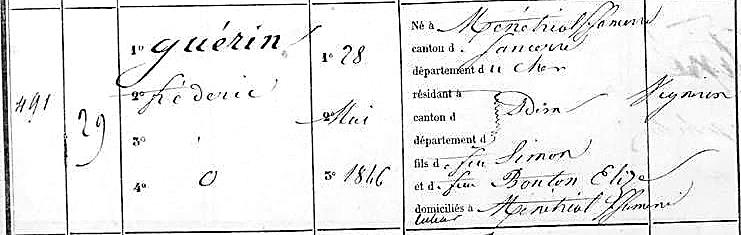 491
29
1° guérin
2° fréderic
3°
4° 0
1° 28
2° Mai
3° 1846
Né à Ménétréol s/Sancerre
canton d Sancerre
département du Cher
résidant à
canton d Idem
département d
fils d feu Simon
et d feu Bonton Elise
domiciliés à Ménétréol s/Sancerre
Vigneron